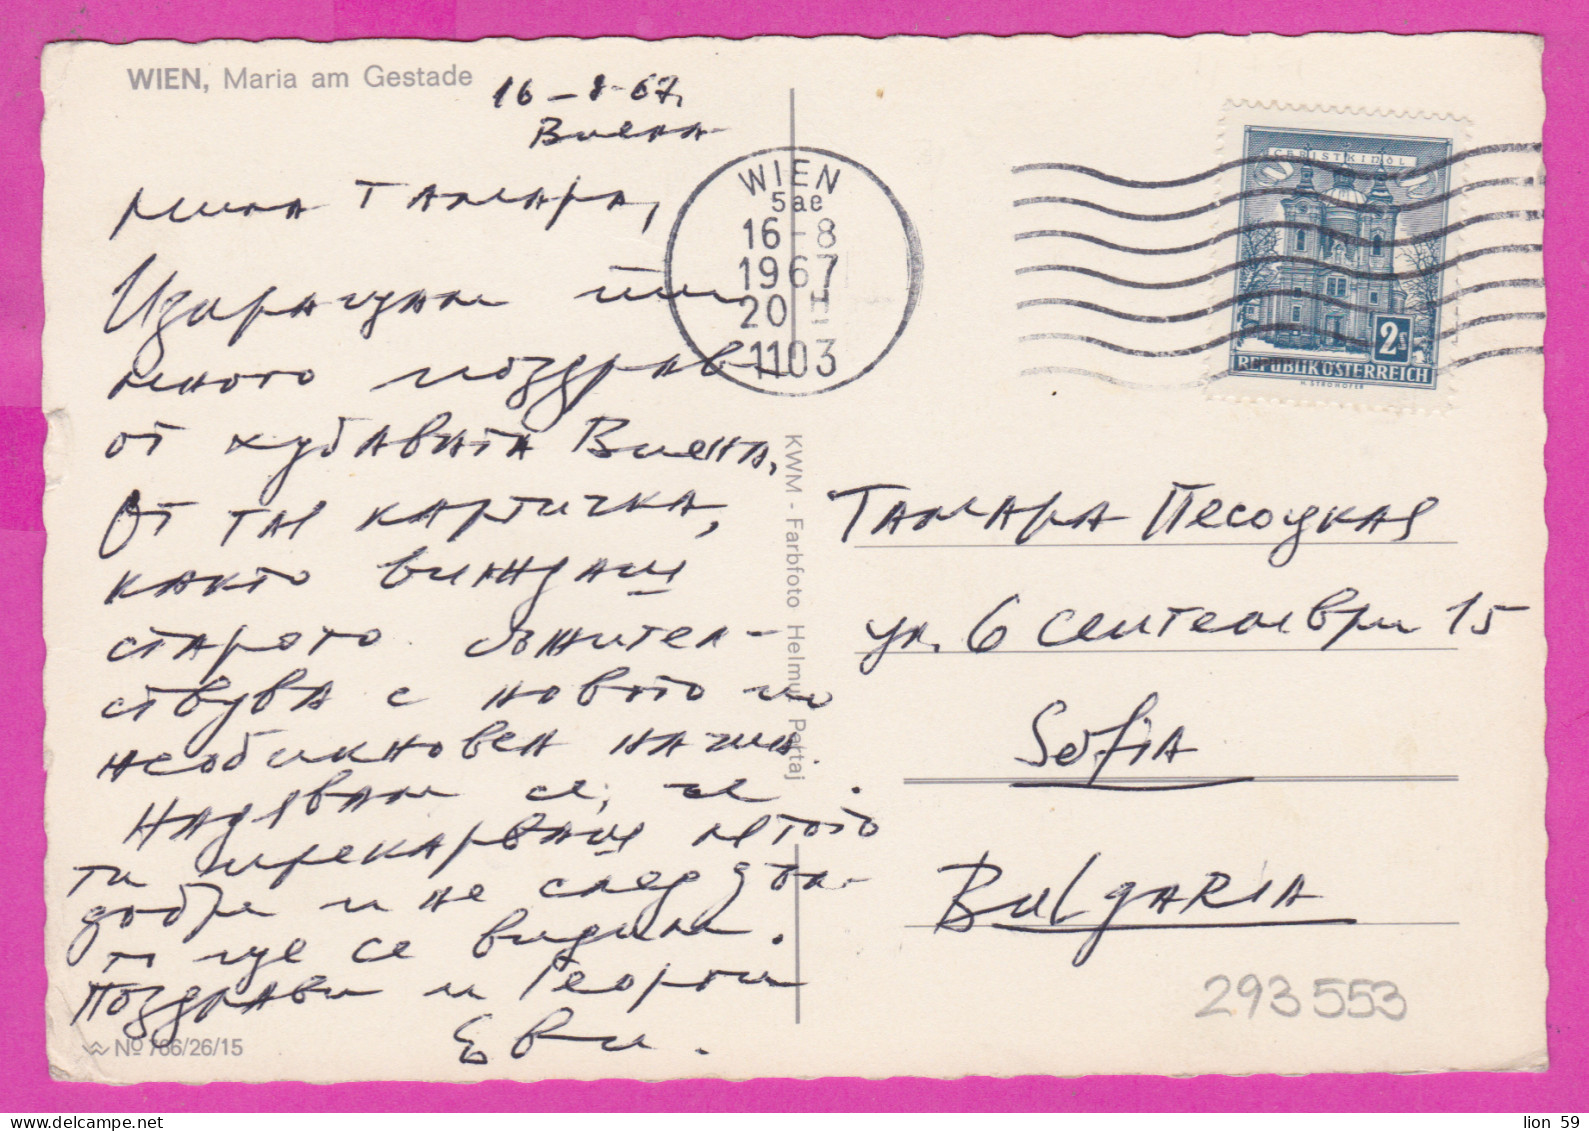 WIEN, Maria am Gestade
16-8-67,
Виена
Мила Тамара,
Изпращам ти
много поздрави
от хубавата Виена,
От тая картичка,
както виждаш
старото съжител-
ствува с новото по
необикновен начин.
Надявам се, че
ти прекарваш лятото
добре и не след дъл-
го ще се видим.
Поздрави и Георги
Еви.
№ 766/26/15
KWM - Farbfoto Helmut Partaj
WIEN
5ae
16-8
1967
20 H
1103
CHRISTKINDL
2S
REPUBLIK ÖSTERREICH
H. STROHOFER
Тамара Песоцкая
ул. 6 Септември 15
Sofia
Bulgaria
293553
lion 59